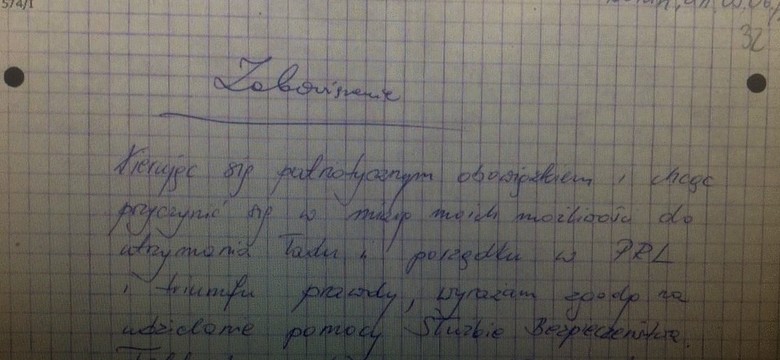 574/1
32
Zobowiązanie
Kierując się patriotycznym obowiązkiem i chcąc
przyczynić się w miarę moich możliwości do
utrzymania ładu i porządku w PRL
i triumfu prawdy, wyrażam zgodę na
udzielanie pomocy Służbie Bezpieczeństwa.